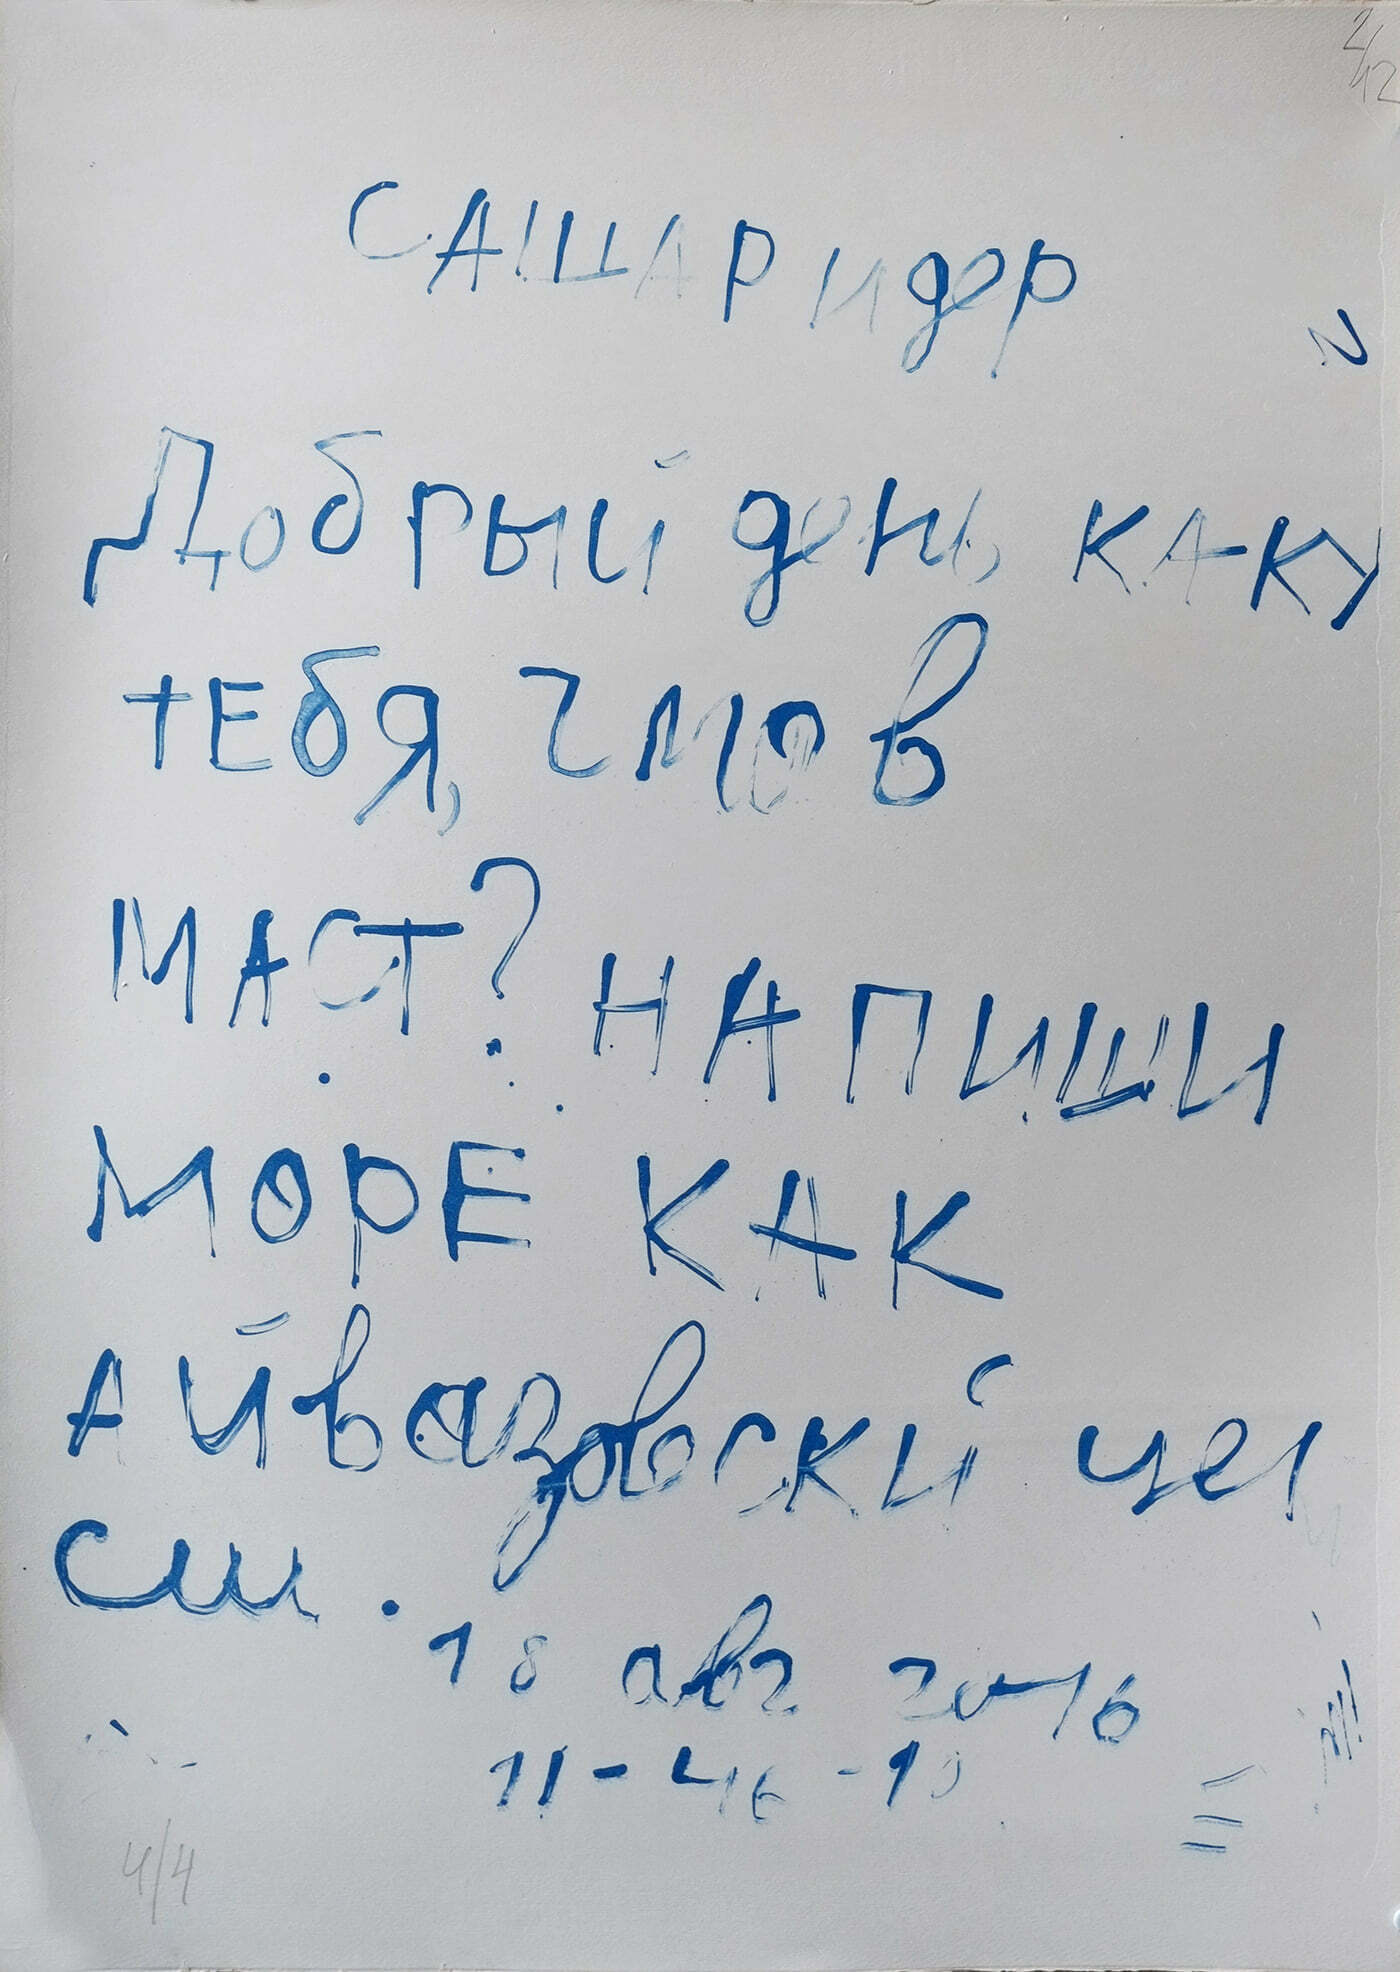 2/12
САША Ридер
Добрый день, как у
тебя, что в
маст? НАПИШИ
МОРЕ КАК
Айвазовский
сш.
18 авг 2016
11-46-19
4/4